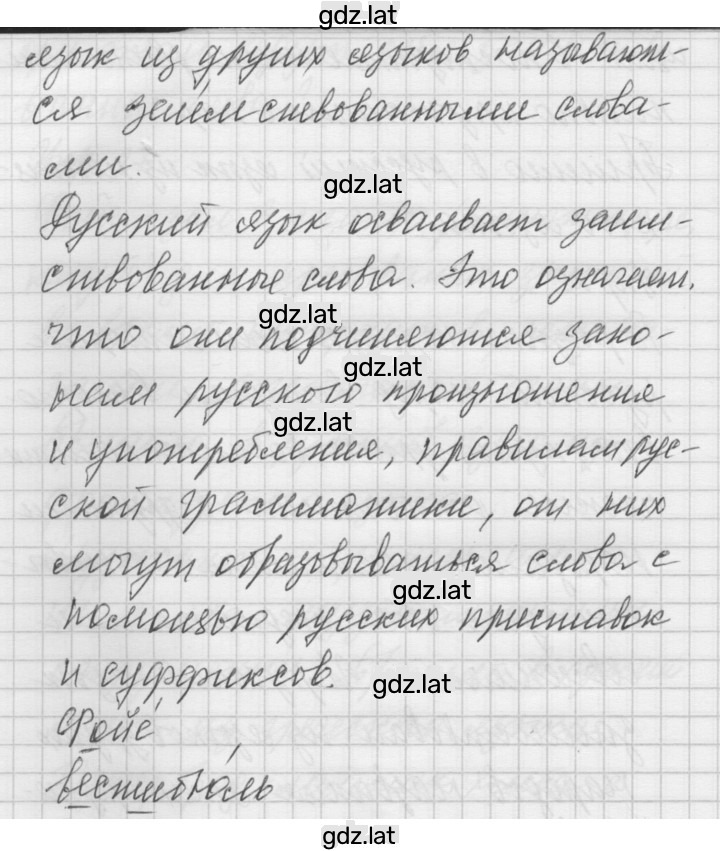 gdz.lat
язык из других языков называют-
ся заимствованными слова-
ми.
gdz.lat
Русский язык осваивает заим-
ствованные слова. Это означает,
gdz.lat
что они подчиняются зако-
gdz.lat
нам русского произношения
gdz.lat
и употребления, правилам рус-
ской грамматики, от них
могут образовываться слова с
gdz.lat
помощью русских приставок
и суффиксов.
gdz.lat
фойе́
вестибю́ль
gdz.lat